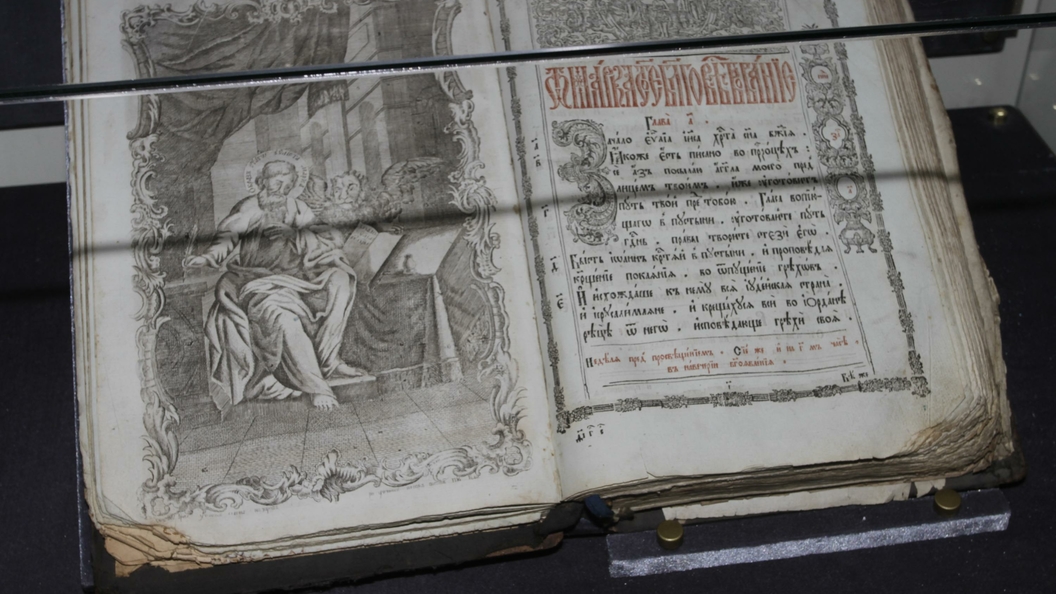 Ѿ ма́рка ст҃о́е бл҃говѣствова́нїе
Глава̀ а҃ .
Зачало еѵⷢ҇лїа і҆и҃са хрⷭ҇та̀ сн҃а бж҃їѧ :
ꙗ҆́коже є҆́сть писано во прⷪ҇ро́цѣхъ :
сѐ а҆́зъ посылаю а҆́гг҃ла моего̀ пред̾
лицемъ твои́мъ . и҆́же ᲂу҆гото́витъ
пꙋ́ть тво́й пред̾ тобо́ю . Гласъ вопїю́-
щагѡ в̾ пꙋсты́ни . ᲂу҆гото́вайте пꙋ́ть
гдⷭ҇нь . пра́вы твори́те стезѝ є҆гѡ̀
Бы́сть і҆ѡа́ннъ крⷭ҇тѧ́й в̾ пꙋсты́ни . и҆ проповѣ́даѧ
крⷳ҇ще́нїе покаѧ́нїѧ . во ѿпꙋще́нїе грѣхѡ́въ .
И҆ и҆схожда́ше къ немꙋ̀ всѧ̀ і҆ꙋде́йскаѧ страна̀
и҆ і҆ерⷭ҇ли́млѧне . и҆ крⷳ҇ща́хꙋсѧ всѝ во і҆ѻрда́нѣ
рѣцѣ̀ ѿ негѡ̀ . и҆сповѣ́дающе грѣхѝ своѧ̑ .
Недѣлѧ пред̾ просвѣще́нїемъ . Се́й же и҆ на г҃-мъ часѣ̀
въ навече́рїи бг҃оѧвле́нїѧ .
Бѣ́ же